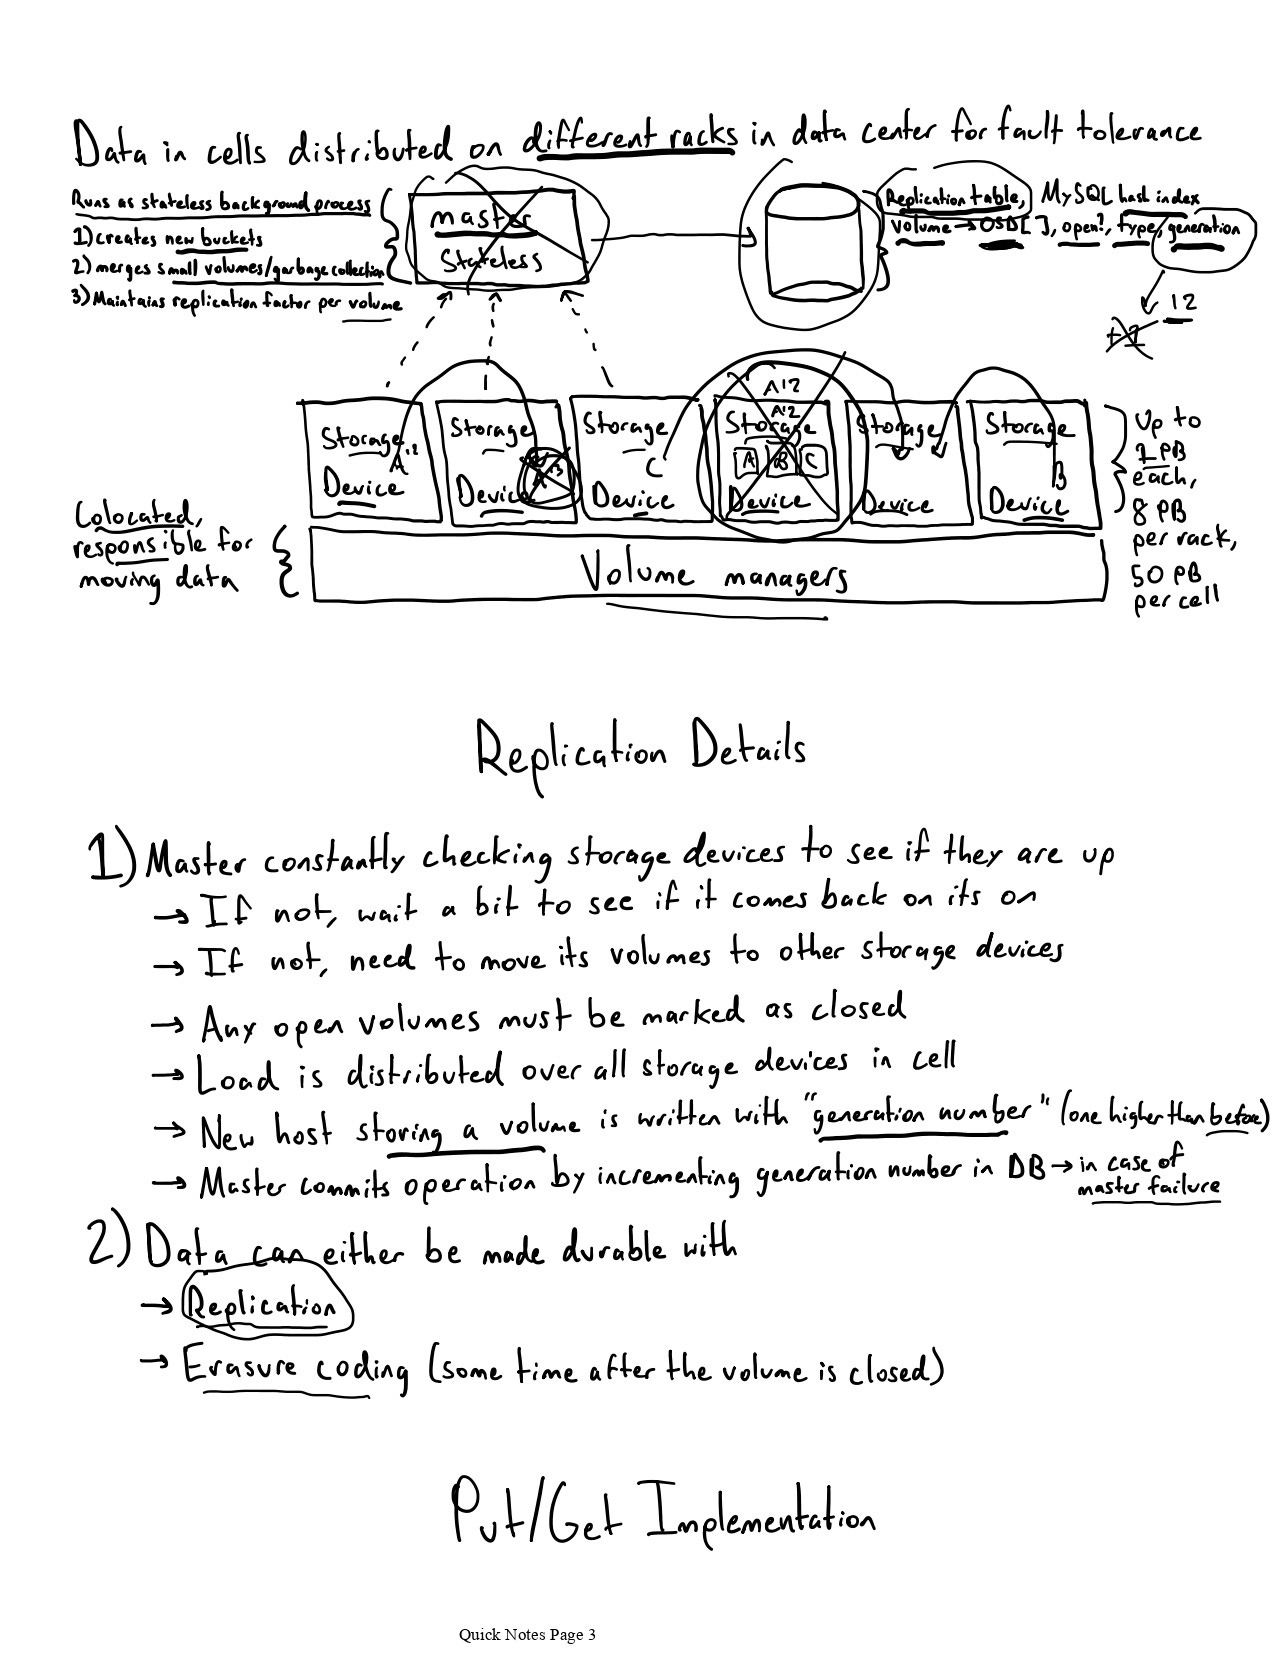 Data in cells distributed on different racks in data center for fault tolerance
Runs as stateless background process
1) creates new buckets
2) merges small volumes/garbage collection
3) Maintains replication factor per volume
master
Stateless
Replication table, MySQL hash index
volume → OSD[], open?, type, generation
12
+1
A'12
A'12
Storage
Device
A'12
Storage
Device
Storage
C
Device
Storage
A B C
Device
Storage
Device
Storage
B
Device
Up to
1 PB
each,
8 PB
per rack,
50 PB
per cell
Colocated,
responsible for
moving data
Volume managers
Replication Details
1) Master constantly checking storage devices to see if they are up
→ If not, wait a bit to see if it comes back on its on
→ If not, need to move its volumes to other storage devices
→ Any open volumes must be marked as closed
→ Load is distributed over all storage devices in cell
→ New host storing a volume is written with "generation number" (one higher than before)
→ Master commits operation by incrementing generation number in DB → in case of
master failure
2) Data can either be made durable with
→ Replication
→ Erasure coding (some time after the volume is closed)
Put/Get Implementation
Quick Notes Page 3